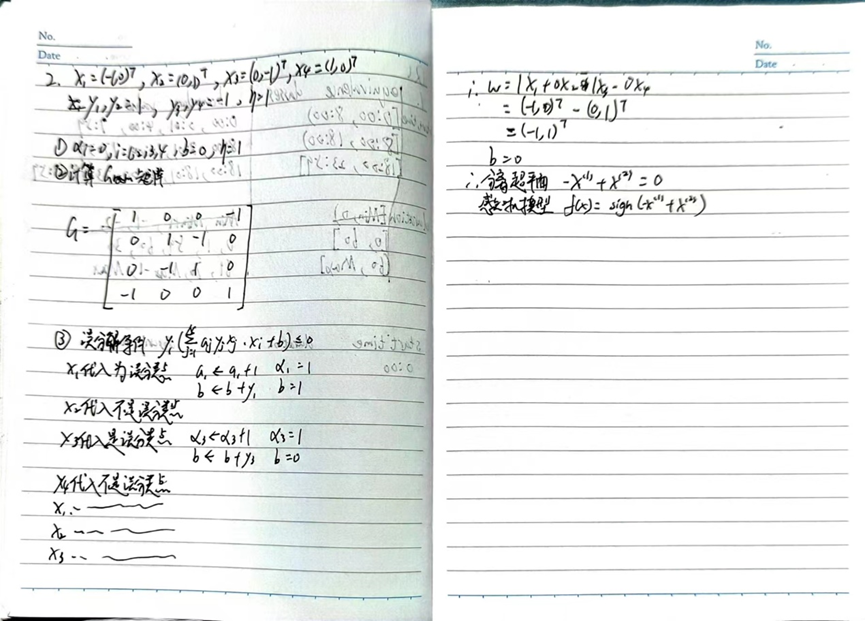 No.
Date
2. x₁=(-1,0)ᵀ, x₂=(0,1)ᵀ, x₃=(0,-1)ᵀ, x₄=(1,0)ᵀ
y₁,y₂=1, y₃,y₄=-1, η=1
① αᵢ=0, i=1,2,3,4, b=0, η=1
② 计算Gram矩阵
G= [ 1 0 0 -1
0 1 -1 0
0 -1 1 0
-1 0 0 1 ]
③ 误分条件 yᵢ(Σ aⱼyⱼxⱼ·xᵢ+b)≤0
x₁代入为误分类点 a₁←a₁+1 α₁=1
b←b+y₁ b=1
x₂代入不是误分类点
x₃代入是误分类点 α₃←α₃+1 α₃=1
b←b+y₃ b=0
x₄代入不是误分类点
x₁
x₂
x₃
No.
Date
∴ w=1x₁+0x₂-1x₃-0x₄
=(-1,0)ᵀ-(0,1)ᵀ
=(-1,1)ᵀ
b=0
∴分离超平面 -x⁽¹⁾+x⁽²⁾=0
感知机模型 f(x)=sign(-x⁽¹⁾+x⁽²⁾)